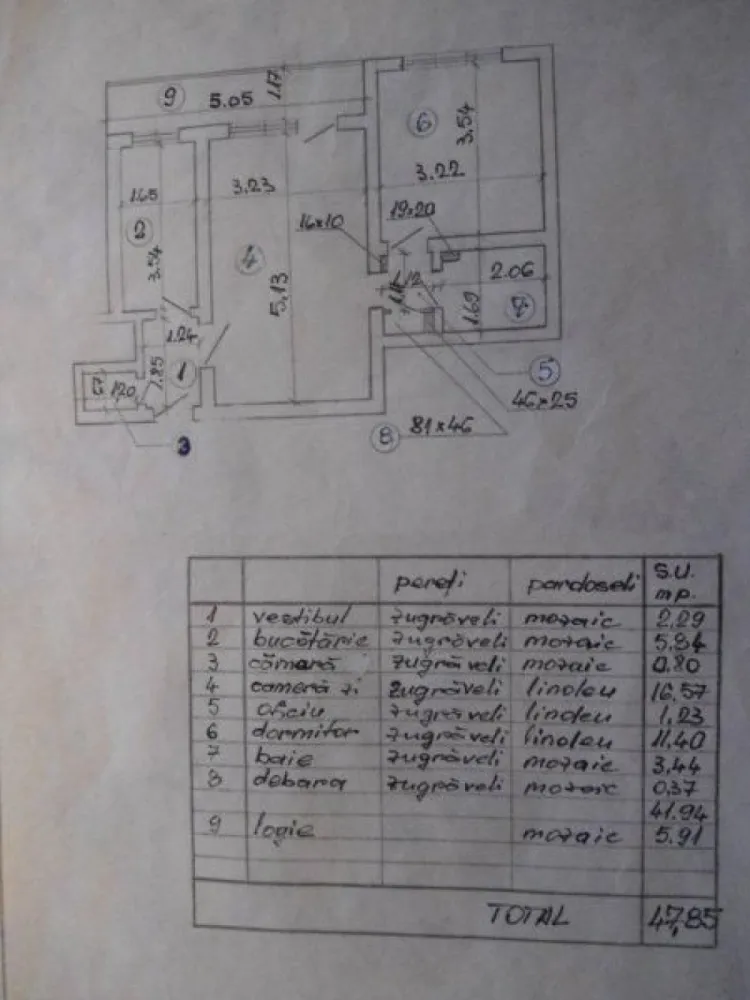 9
5.05
1.17
6
3.54
3.22
1.65
2
3.54
3.23
4
5.13
16x10
19x20
2.06
7
1.69
1.24
1
1.85
120
3
5
46x25
8
81x46
pereți pardoseli S.U. mp.
1 vestibul zugrăveli mozaic 2,29
2 bucătărie zugrăveli mozaic 5.84
3 cămară zugrăveli mozaic 0.80
4 cameră zi zugrăveli linoleu 16.57
5 oficiu zugrăveli linoleu 1,23
6 dormitor zugrăveli linoleu 11.40
7 baie zugrăveli mozaic 3,44
8 debara zugrăveli mozaic 0.37
41.94
9 logie mozaic 5.91
TOTAL 47,85